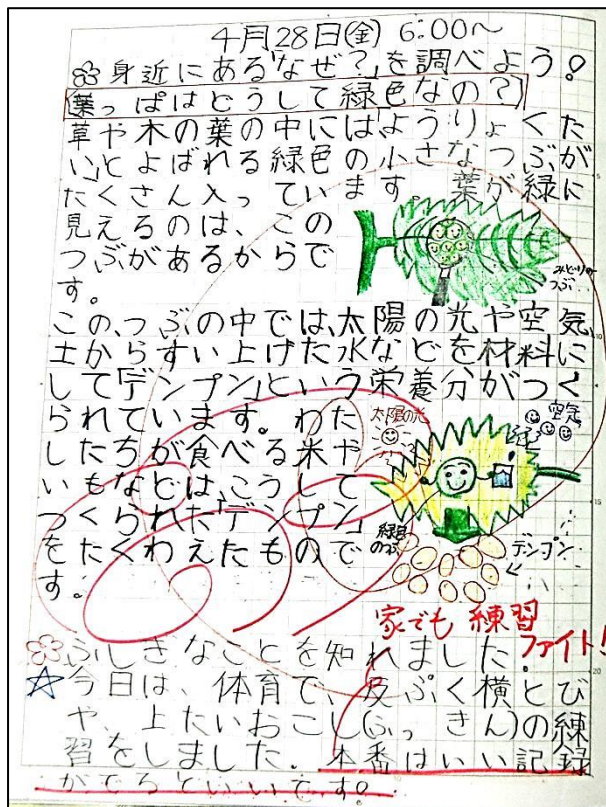 4月28日(金) 6:00〜
身近にある「なぜ?」を調べよう!
(葉っぱはどうして緑色なの?)
草や木の葉の中には、「ようりょくた
い」とよばれる緑色の小さなつぶが
たくさん入っています。葉が緑に
見えるのは、この
つぶがあるからで
す。
みどりの
つぶ
この、つぶの中では、太陽の光や空気、
土からすい上げた水などを材料に
して「デンプン」という栄養分がつく
られています。わた
したちが食べる米や
いもなどは、こうして
つくられた「デンプン」
をたくわえたもので
す。
太陽の光
空気
緑色
のつぶ
デンプン
家でも練習
ファイト!
ふしぎなことを知れました。
今日は、体育で、反ぷく横とび
や、上たいおこし(ふっきん)の練
習をしました。本番はいい記録
がでるといいです!
5
10
15
20